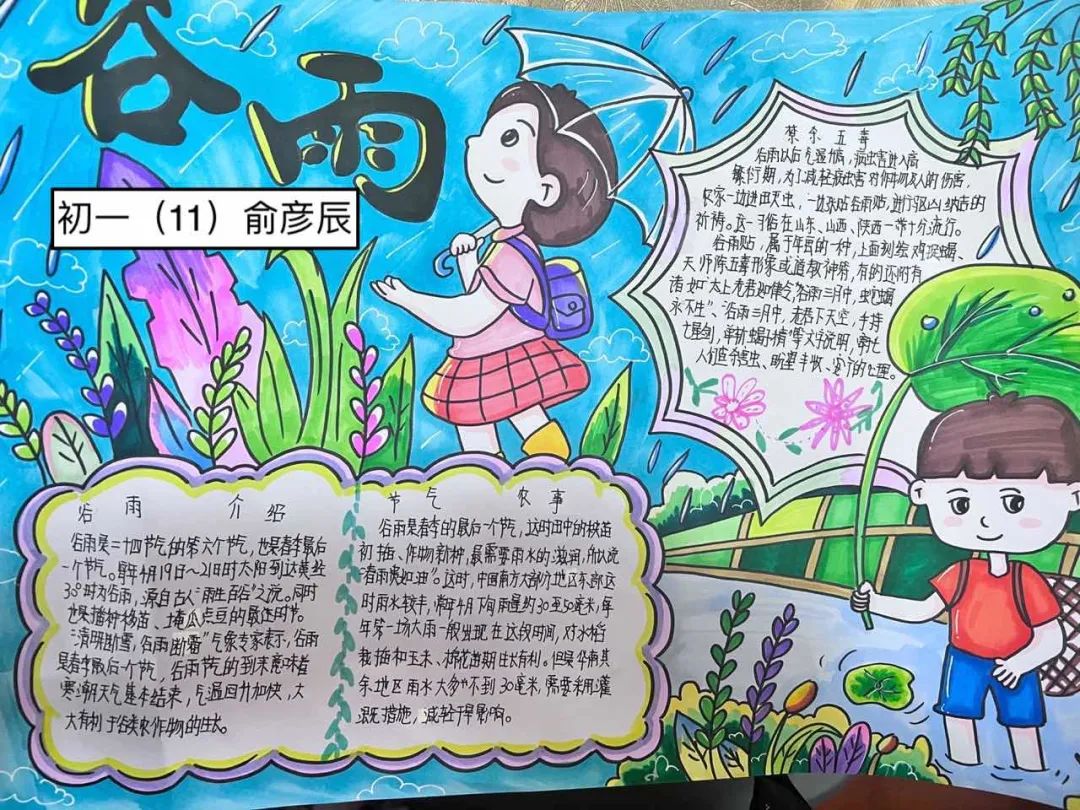 谷雨
初一（11）俞彦辰
禁杀五毒
谷雨以后气温升高，病虫害进入高
繁衍期，为了减轻病虫害对作物及人的伤害，
农家一边进田灭虫，一边张贴谷雨贴，进行驱凶纳吉的
祈祷。这一习俗在山东、山西、陕西一带十分流行。
谷雨贴，属于年画的一种，上面刻绘鸡捉蝎、
天师除五毒形象或道教神符，有的还附有
诸如"太上老君如律令，谷雨三月中，蛇蝎
永不生"、"谷雨三月中，老君下天空，手持
七星剑，单斩蝎子精"等文字说明，
人们查杀害虫、盼望丰收、安宁的心理。
谷雨 介绍
谷雨是二十四节气的第六个节气，也是春季最后
一个节气。每年4月19日～21日时太阳到达黄经
30°时为谷雨，源自古人"雨生百谷"之说。同时
也是播种移苗、埯瓜点豆的最佳时节。
"清明断雪，谷雨断霜"气象专家表示，谷雨
是春季最后一个节气，谷雨节气的到来意味着
寒潮天气基本结束，气温回升加快，大
大有利于谷类农作物的生长。
节气 农事
谷雨是春季的最后一个节气，这时田中的秧苗
初插、作物新种，最需要雨水的滋润，所以说
"春雨贵如油"。这时，中国南方大部分地区东部这
时雨水较丰，常年4月下旬雨量约30至50毫米，每
年第一场大雨一般出现在这段时间，对水稻
栽插和玉米、棉花苗期生长有利。但是华南其
余地区雨水大多不到30毫米，需要采用灌
溉措施，减轻干旱影响。